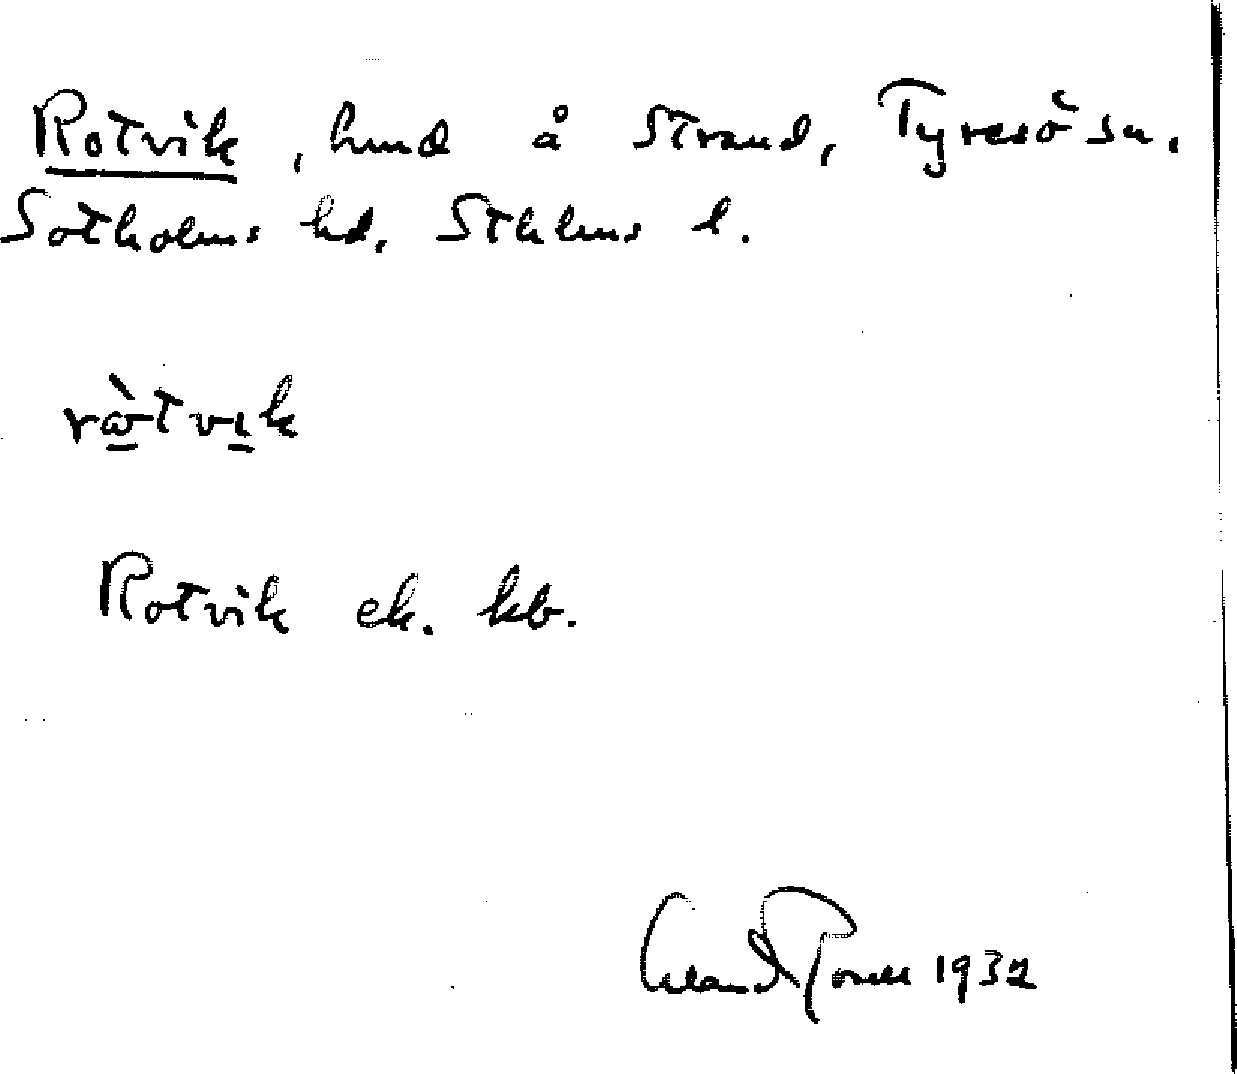 Rotvik, lund å Strand, Tyresö sn.
Sotholms hd. Sthlms l.
ròtvik
Rotvik ek. kb.
1932